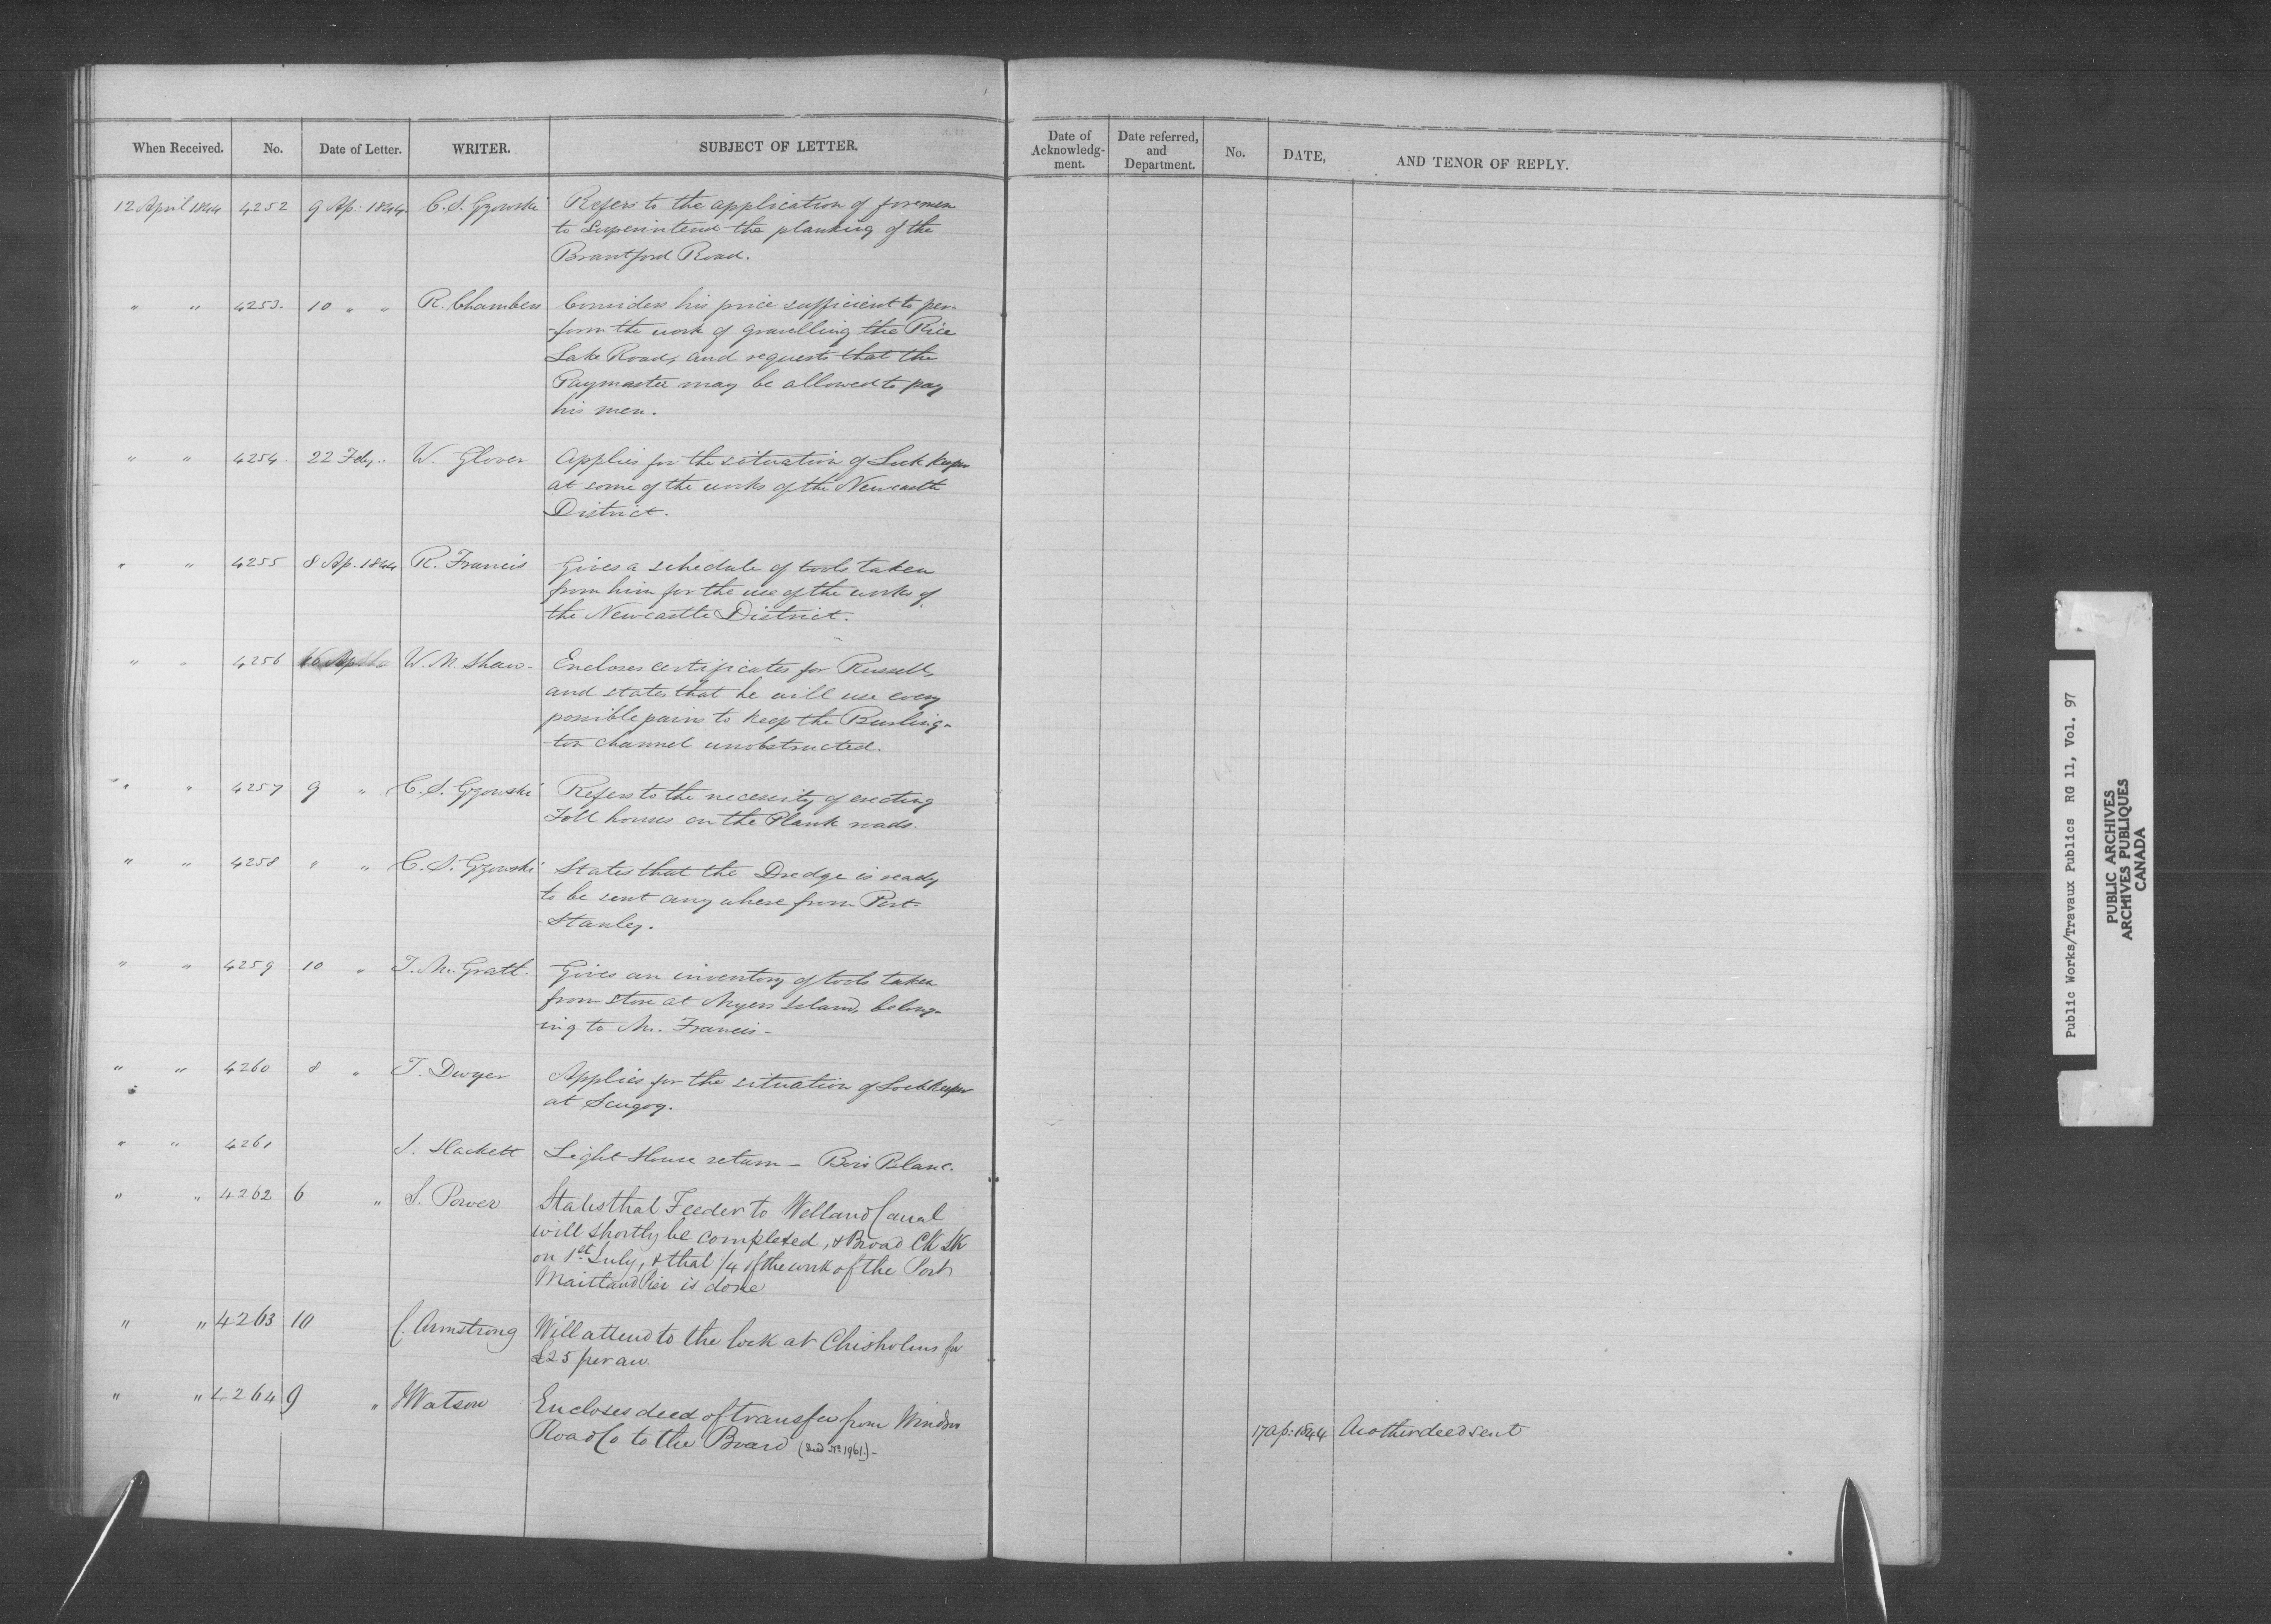 When Received. No. Date of Letter. WRITER. SUBJECT OF LETTER.
Date of Acknowledg-ment. Date referred, and Department. No. DATE, AND TENOR OF REPLY.
12 April 1844 4252 9 Ap. 1844. C. S. Gzowski Refers to the application of foremen
to superintend the planking of the
Brantford Road.
" " 4253. 10 " " R. Chambers Considers his price sufficient to per-
-form the work of gravelling the Rice
Lake Road, and requests that the
Paymaster may be allowed to pay
his men.
" " 4254. 22 Feby. W. Glover Applies for the situation of Lock keeper
at some of the works of the Newcastle
District.
" " 4255 8 Ap. 1844 R. Francis Gives a schedule of tools taken
from him for the use of the works of
the Newcastle District.
" " 4256 W. M. Shaw - Encloses certificates for Russell,
and states that he will use every
possible pains to keep the Burling-
-ton channel unobstructed.
" " 4257 9 " C. S. Gzowski Refers to the necessity of erecting
Toll houses on the Plank roads.
" " 4258 " " C. S. Gzowski States that the Dredge is ready
to be sent any where from Port-
-Stanley.
" " 4259 10 " T. Mc. Gratt. Gives an inventory of tools taken
from store at Myers Island, belong-
-ing to Mr. Francis -
" " 4260 8 " T. Dwyer Applies for the situation of Lock keeper
at Scugog.
" " 4261 J. Hackett Light House return - Bois Blanc.
" " 4262 6 " S. Power States that Feeder to Welland Canal
will shortly be completed, & Broad Ck Lk
on 1st July, & that 1/4 of the work of the Port
Maitland Pier is done
" " 4263 10 C. Armstrong Will attend to the lock at Chisholms for
£25 per an.
" " 4264 9 " J Watson Encloses deed of transfer from Windsor
Road Co to the Board (Deed No. 1961.) -
17 Ap: 1844 Another deed sent
Public Works/Travaux Publics RG 11, Vol. 97
PUBLIC ARCHIVES
ARCHIVES PUBLIQUES
CANADA